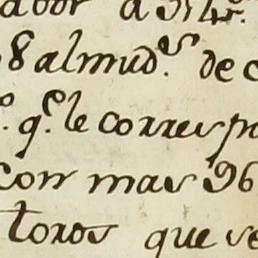 8 almud.s de
q.e le corresp
con mas 96
toros que se